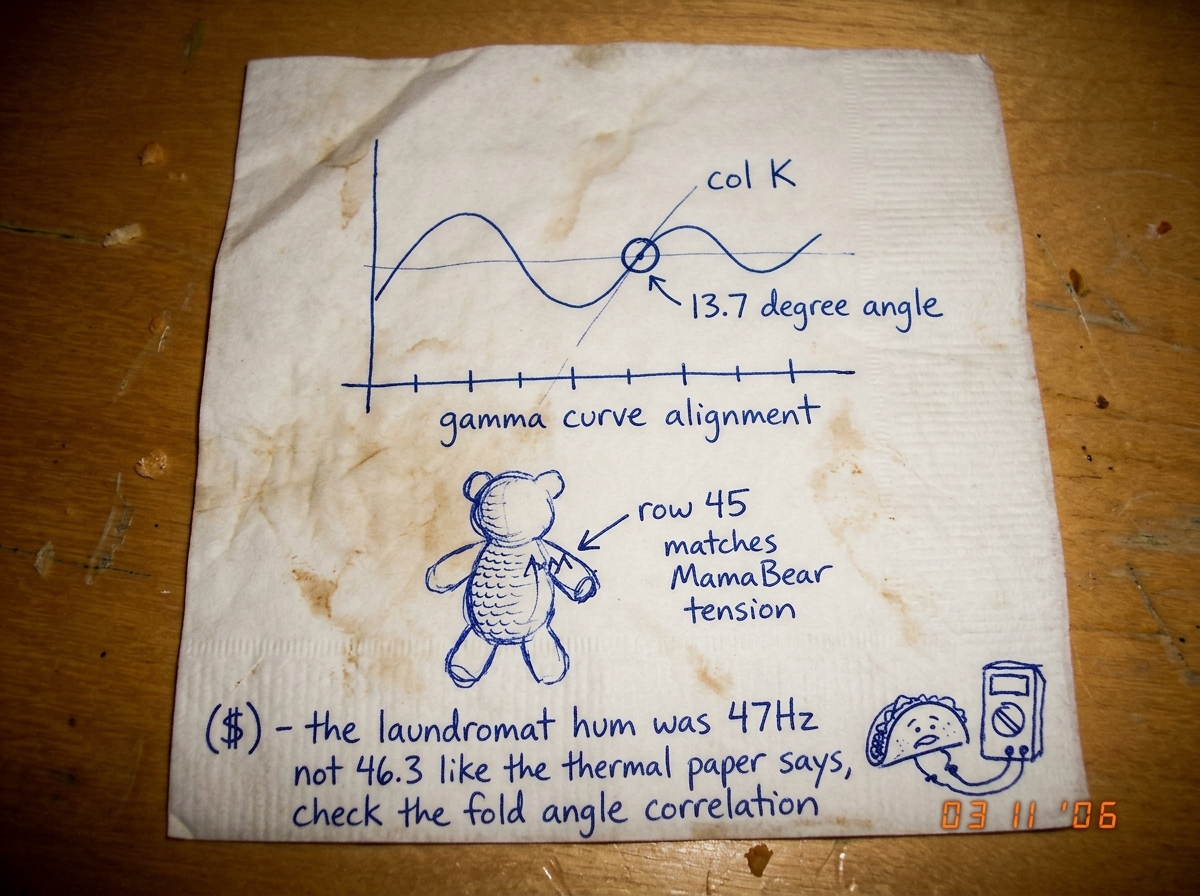 col K
13.7 degree angle
gamma curve alignment
row 45
matches
MamaBear
tension
($) - the laundromat hum was 47Hz
not 46.3 like the thermal paper says,
check the fold angle correlation
03 11 '06